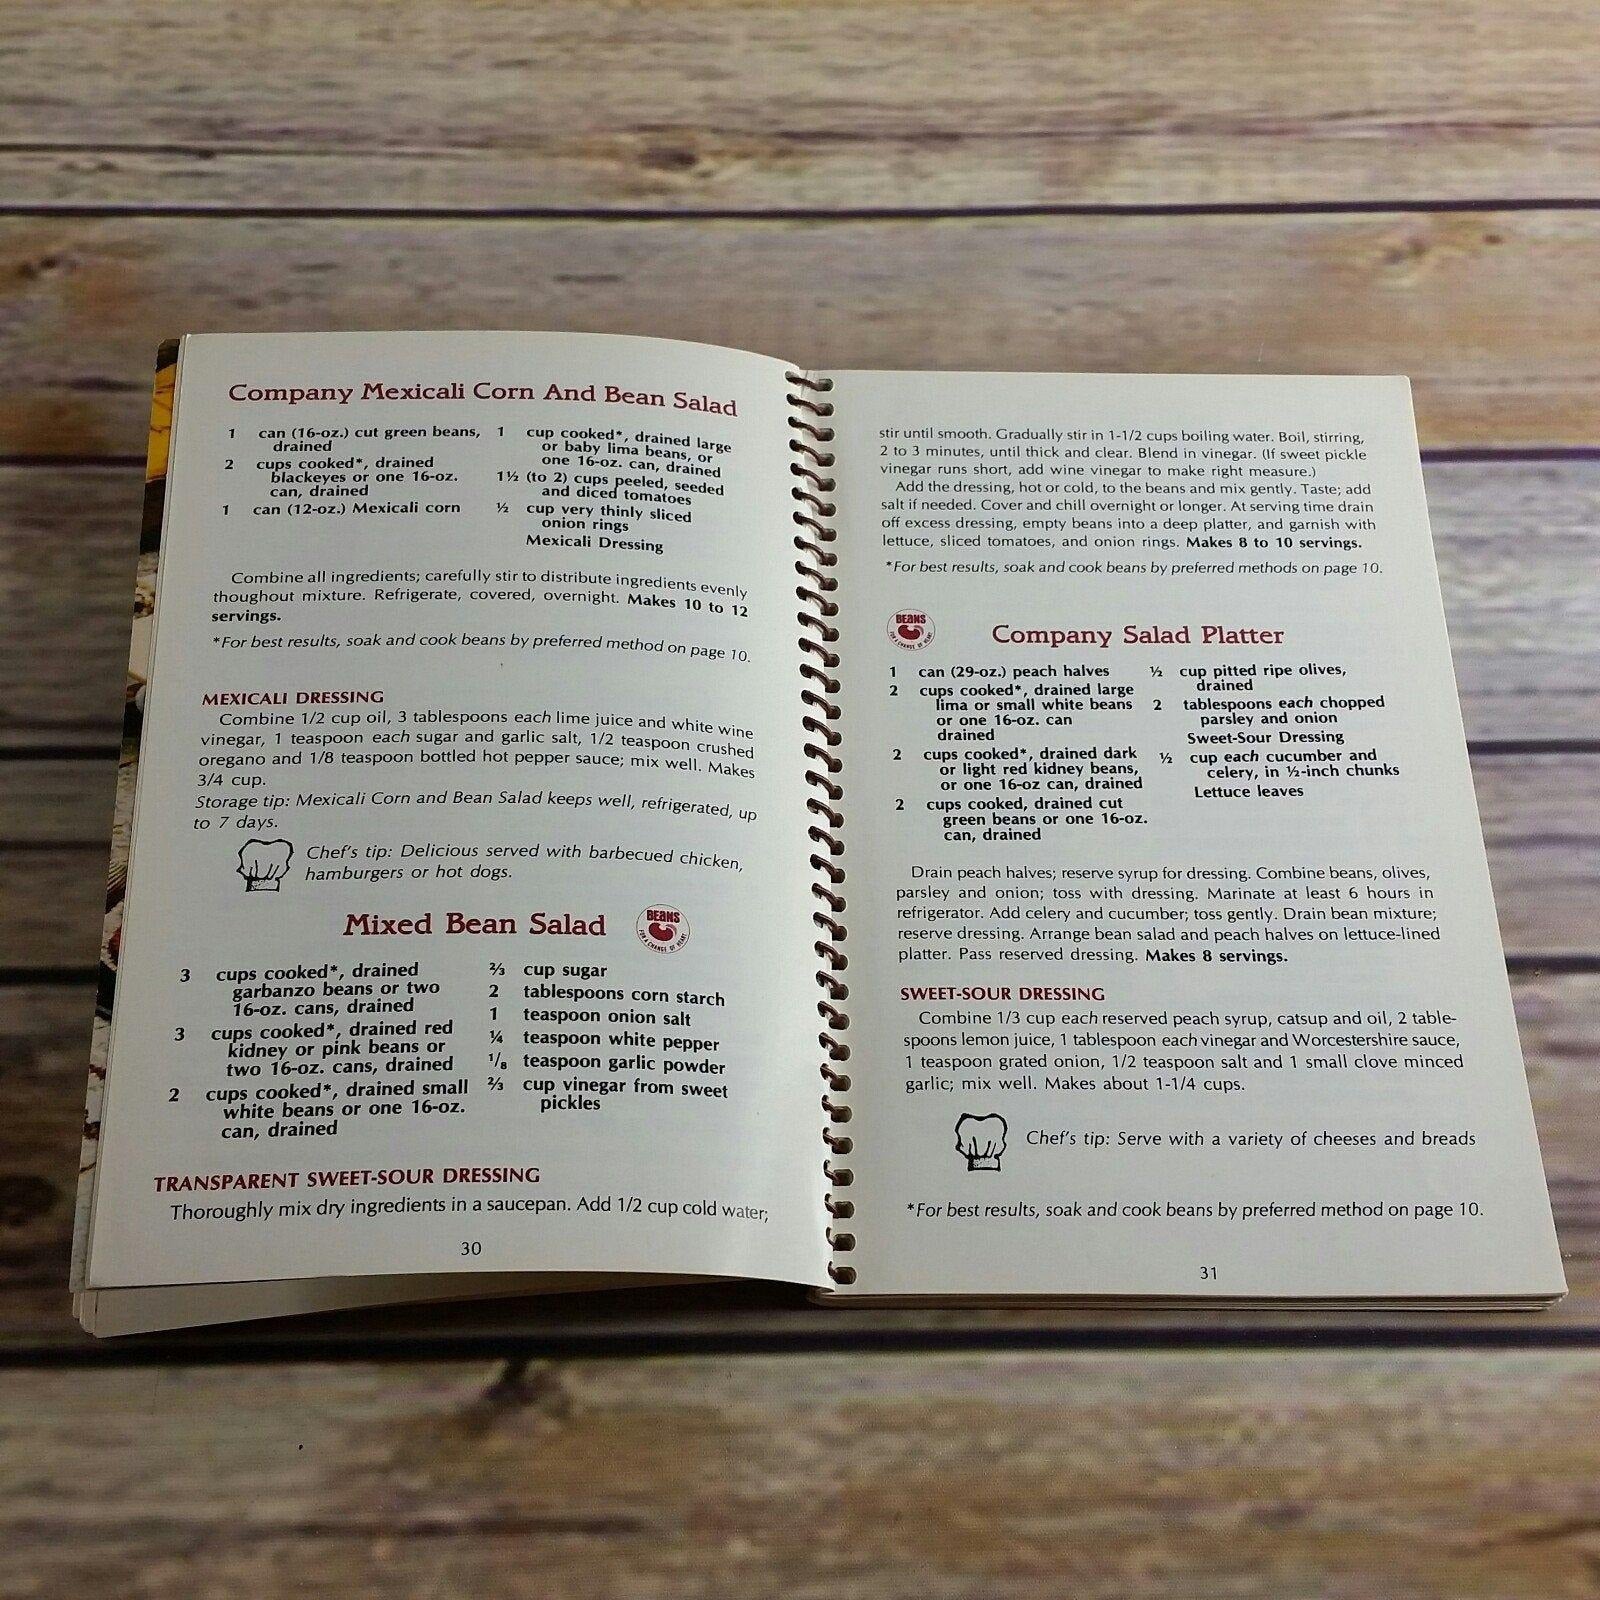 Company Mexicali Corn And Bean Salad
1 can (16-oz.) cut green beans,
drained
2 cups cooked*, drained
blackeyes or one 16-oz.
can, drained
1 can (12-oz.) Mexicali corn
1 cup cooked*, drained large
or baby lima beans, or
one 16-oz. can, drained
1½ (to 2) cups peeled, seeded
and diced tomatoes
½ cup very thinly sliced
onion rings
Mexicali Dressing
Combine all ingredients; carefully stir to distribute ingredients evenly
thoughout mixture. Refrigerate, covered, overnight. Makes 10 to 12
servings.
*For best results, soak and cook beans by preferred method on page 10.
MEXICALI DRESSING
Combine 1/2 cup oil, 3 tablespoons each lime juice and white wine
vinegar, 1 teaspoon each sugar and garlic salt, 1/2 teaspoon crushed
oregano and 1/8 teaspoon bottled hot pepper sauce; mix well. Makes
3/4 cup.
Storage tip: Mexicali Corn and Bean Salad keeps well, refrigerated, up
to 7 days.
Chef's tip: Delicious served with barbecued chicken,
hamburgers or hot dogs.
Mixed Bean Salad
BEANS
FOR A CHANGE OF HEART
3 cups cooked*, drained
garbanzo beans or two
16-oz. cans, drained
3 cups cooked*, drained red
kidney or pink beans or
two 16-oz. cans, drained
2 cups cooked*, drained small
white beans or one 16-oz.
can, drained
⅔ cup sugar
2 tablespoons corn starch
1 teaspoon onion salt
¼ teaspoon white pepper
1/8 teaspoon garlic powder
⅔ cup vinegar from sweet
pickles
TRANSPARENT SWEET-SOUR DRESSING
Thoroughly mix dry ingredients in a saucepan. Add 1/2 cup cold water;
30
stir until smooth. Gradually stir in 1-1/2 cups boiling water. Boil, stirring,
2 to 3 minutes, until thick and clear. Blend in vinegar. (If sweet pickle
vinegar runs short, add wine vinegar to make right measure.)
Add the dressing, hot or cold, to the beans and mix gently. Taste; add
salt if needed. Cover and chill overnight or longer. At serving time drain
off excess dressing, empty beans into a deep platter, and garnish with
lettuce, sliced tomatoes, and onion rings. Makes 8 to 10 servings.
*For best results, soak and cook beans by preferred methods on page 10.
BEANS
FOR A CHANGE OF HEART
Company Salad Platter
1 can (29-oz.) peach halves
2 cups cooked*, drained large
lima or small white beans
or one 16-oz. can
drained
2 cups cooked*, drained dark
or light red kidney beans,
or one 16-oz can, drained
2 cups cooked, drained cut
green beans or one 16-oz.
can, drained
½ cup pitted ripe olives,
drained
2 tablespoons each chopped
parsley and onion
Sweet-Sour Dressing
½ cup each cucumber and
celery, in ½-inch chunks
Lettuce leaves
Drain peach halves; reserve syrup for dressing. Combine beans, olives,
parsley and onion; toss with dressing. Marinate at least 6 hours in
refrigerator. Add celery and cucumber; toss gently. Drain bean mixture;
reserve dressing. Arrange bean salad and peach halves on lettuce-lined
platter. Pass reserved dressing. Makes 8 servings.
SWEET-SOUR DRESSING
Combine 1/3 cup each reserved peach syrup, catsup and oil, 2 table-
spoons lemon juice, 1 tablespoon each vinegar and Worcestershire sauce,
1 teaspoon grated onion, 1/2 teaspoon salt and 1 small clove minced
garlic; mix well. Makes about 1-1/4 cups.
Chef's tip: Serve with a variety of cheeses and breads
*For best results, soak and cook beans by preferred method on page 10.
31